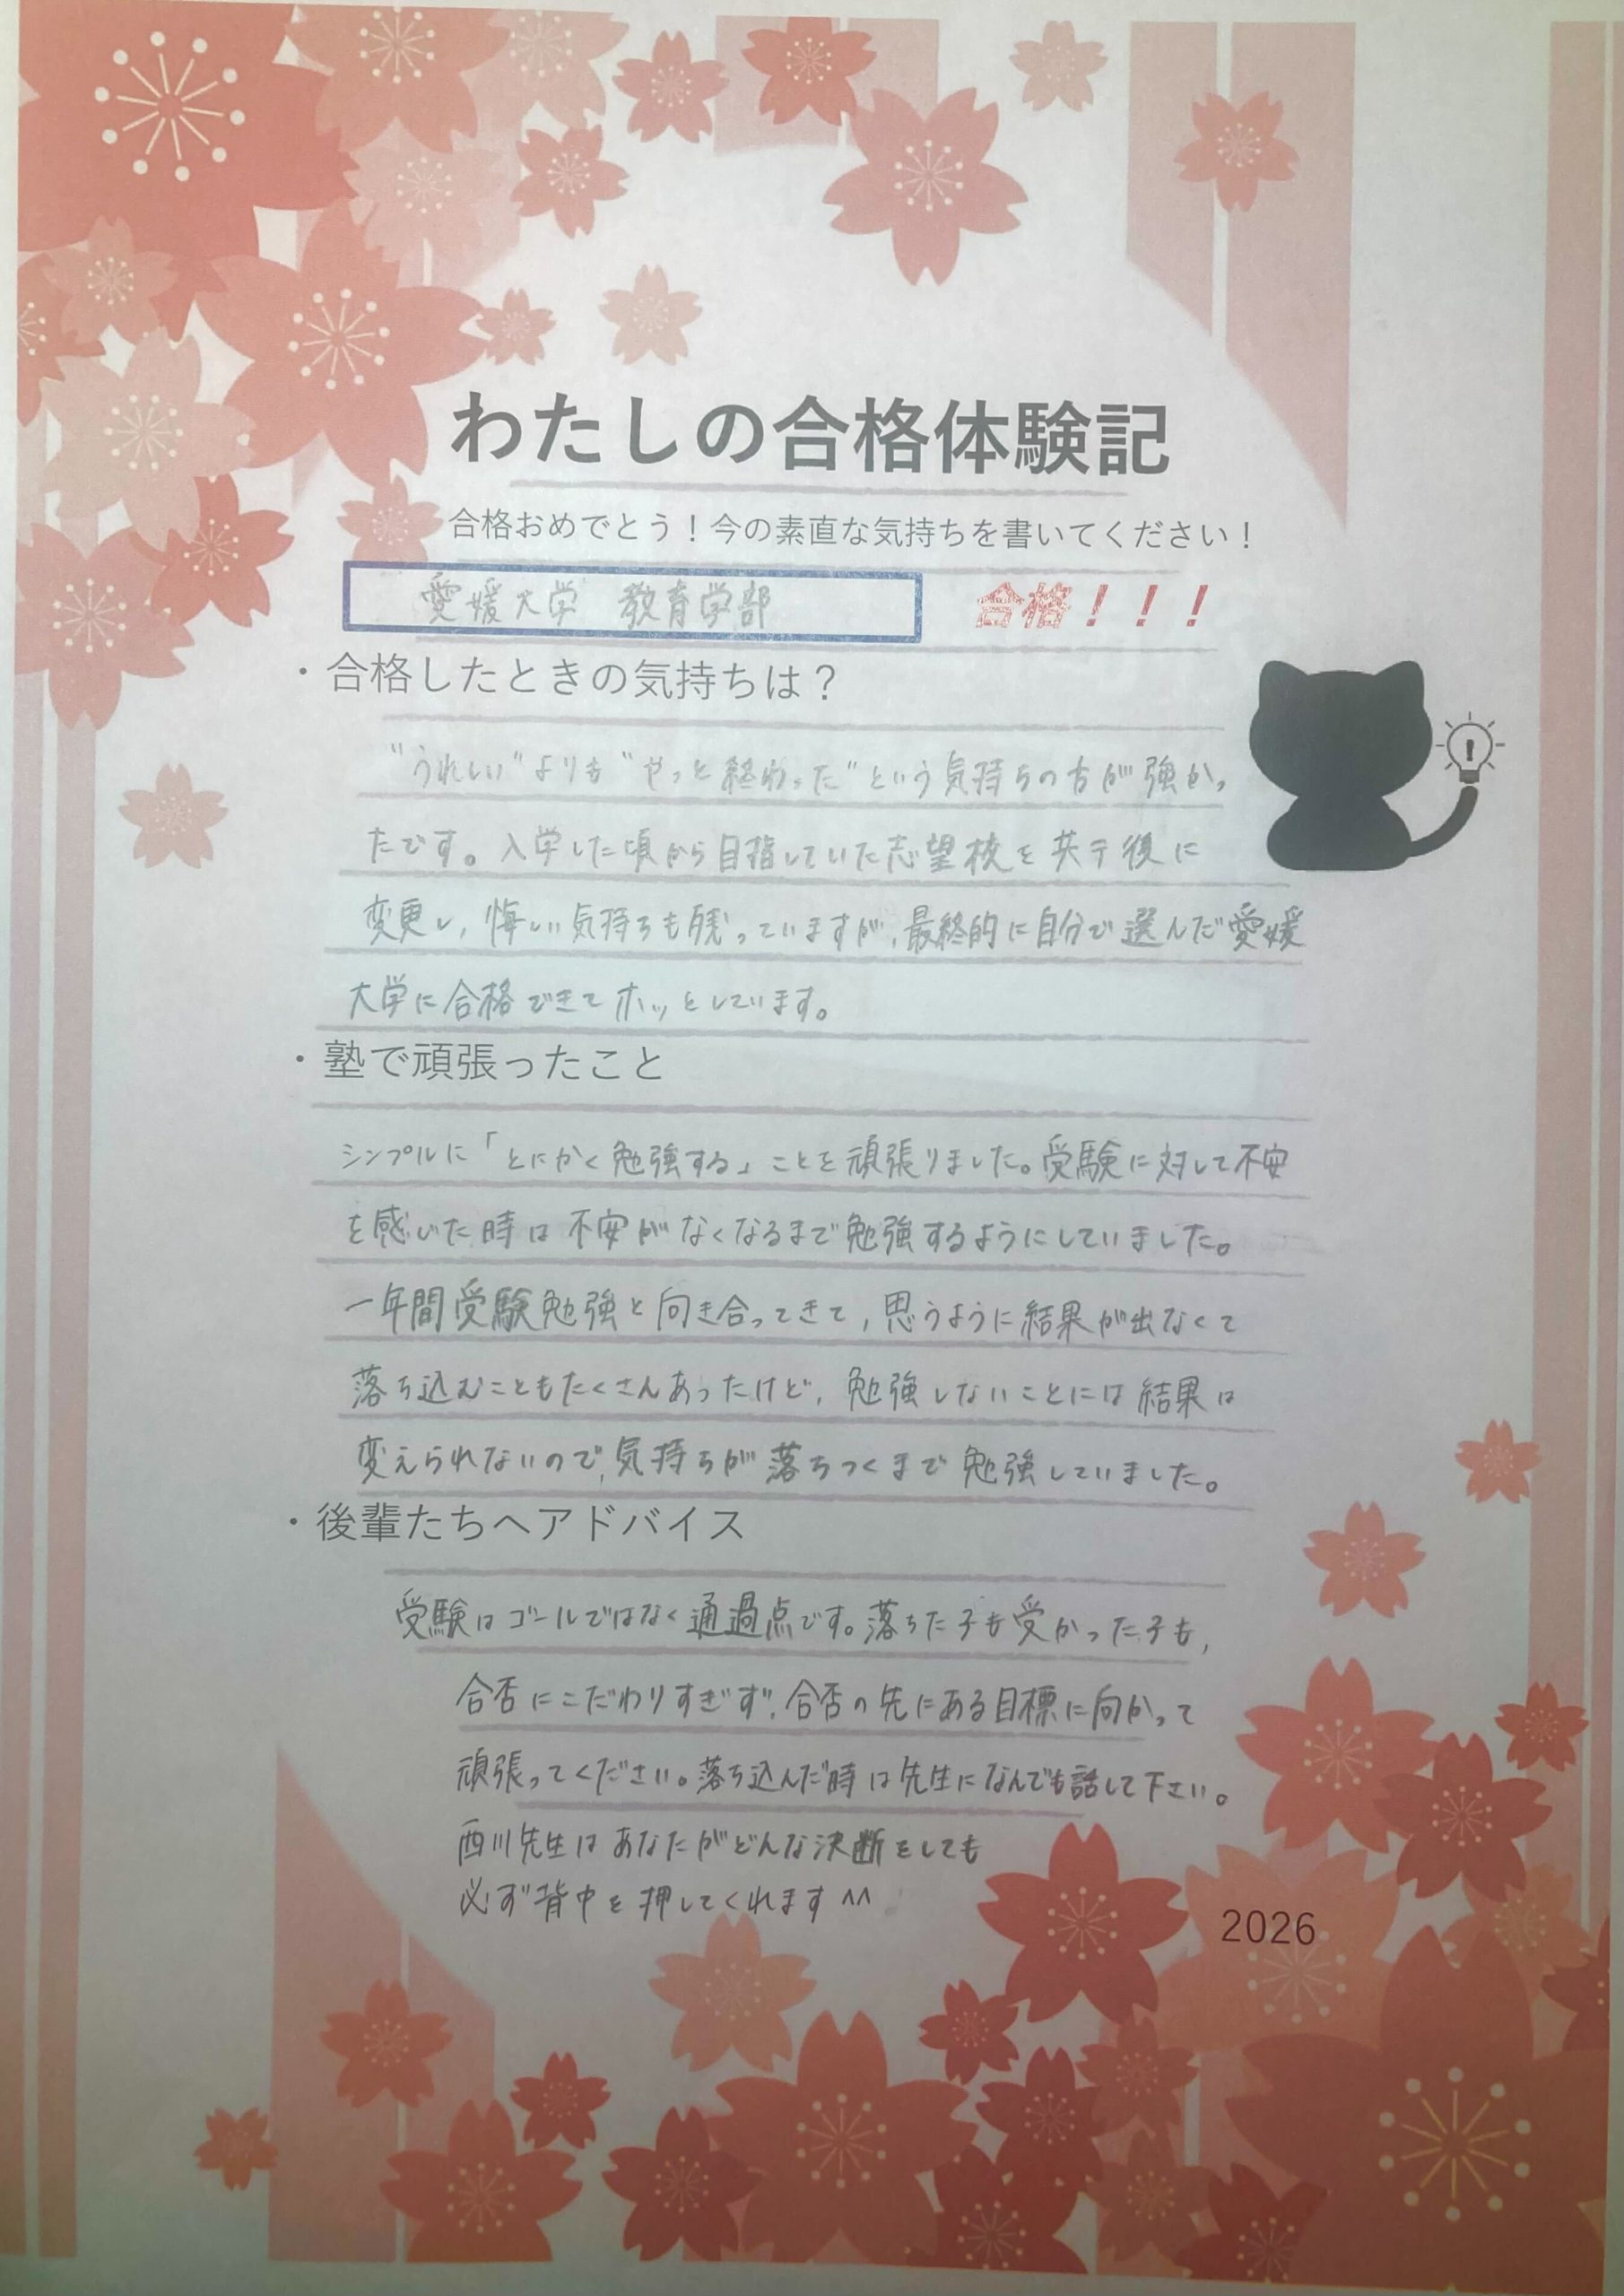 わたしの合格体験記
合格おめでとう！今の素直な気持ちを書いてください！
愛媛大学 教育学部 合格！！！
・合格したときの気持ちは？
"うれしい"よりも"やっと終わった"という気持ちの方が強かっ
たです。入学した頃から目指していた志望校を共テ後に
変更し，悔しい気持ちも残っていますが，最終的に自分で選んだ愛媛
大学に合格できてホッとしています。
・塾で頑張ったこと
シンプルに「とにかく勉強する」ことを頑張りました。受験に対して不安
を感じた時は不安がなくなるまで勉強するようにしていました。
一年間受験勉強と向き合ってきて，思うように結果が出なくて
落ち込むこともたくさんあったけど，勉強しないことには結果は
変えられないので，気持ちが落ちつくまで勉強していました。
・後輩たちへアドバイス
受験はゴールではなく通過点です。落ちた子も受かった子も，
合否にこだわりすぎず，合否の先にある目標に向かって
頑張ってください。落ち込んだ時は先生になんでも話して下さい。
西川先生はあなたがどんな決断をしても
必ず背中を押してくれます^^
2026